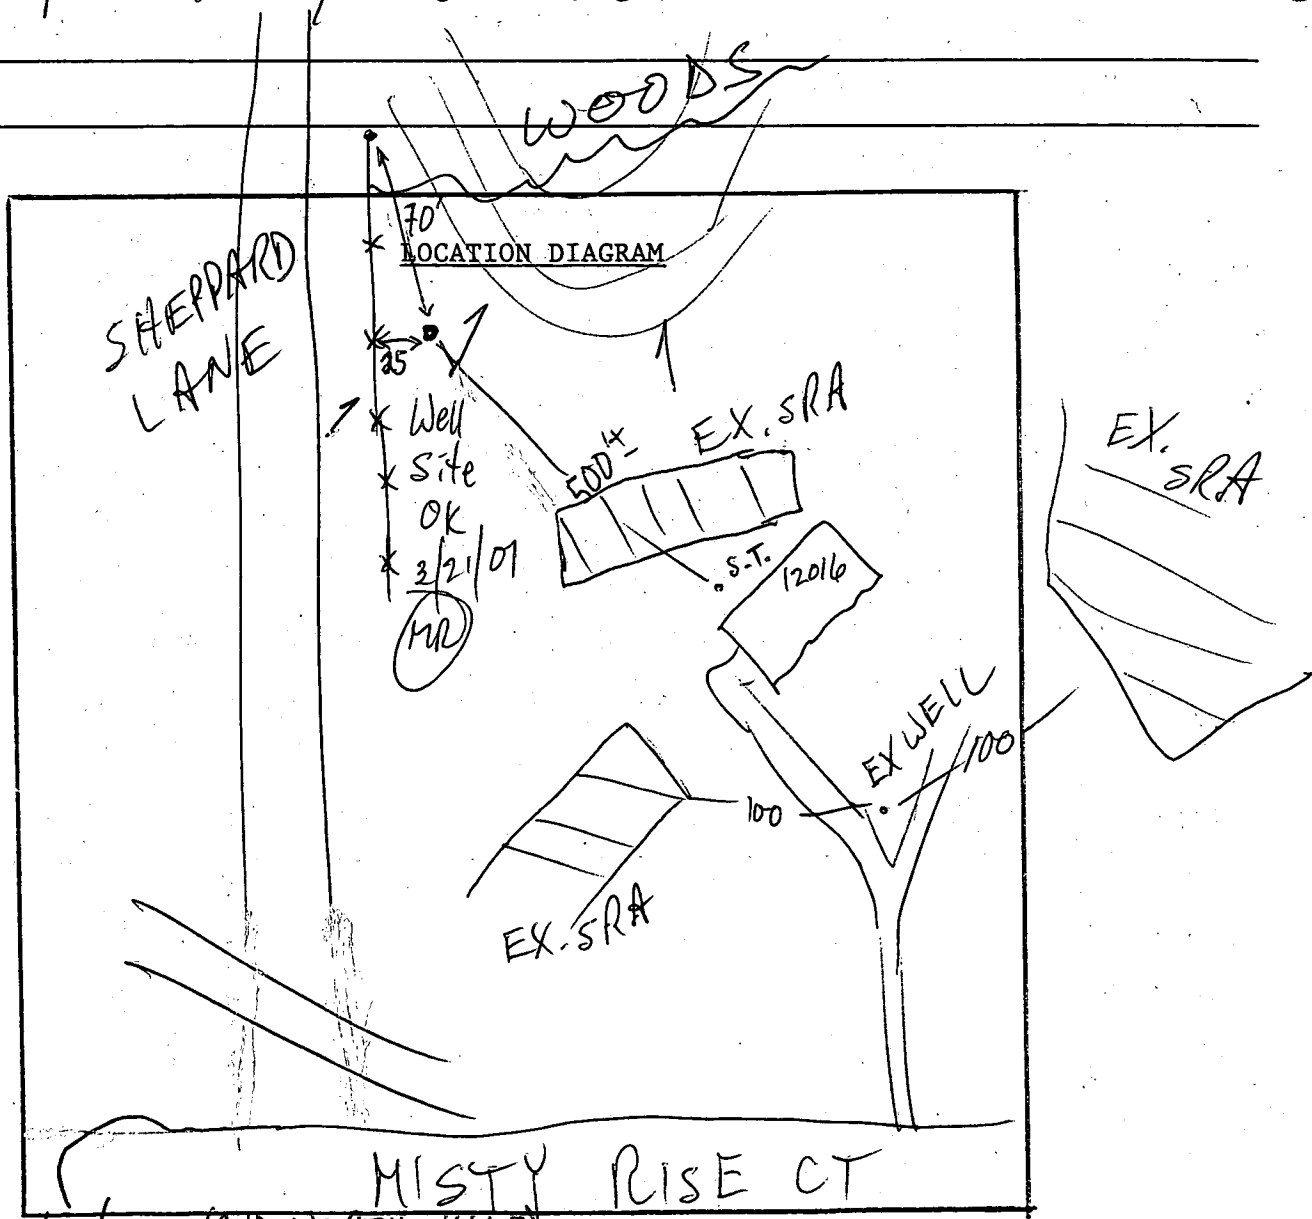 WOODS
70'
LOCATION DIAGRAM
SHEPPARD
LANE
Well
Site
OK
3/21/07
MR
500'±
EX. SRA
EX.
SRA
S.T.
12016
EX WELL
100
100
EX. SRA
MISTY RISE CT